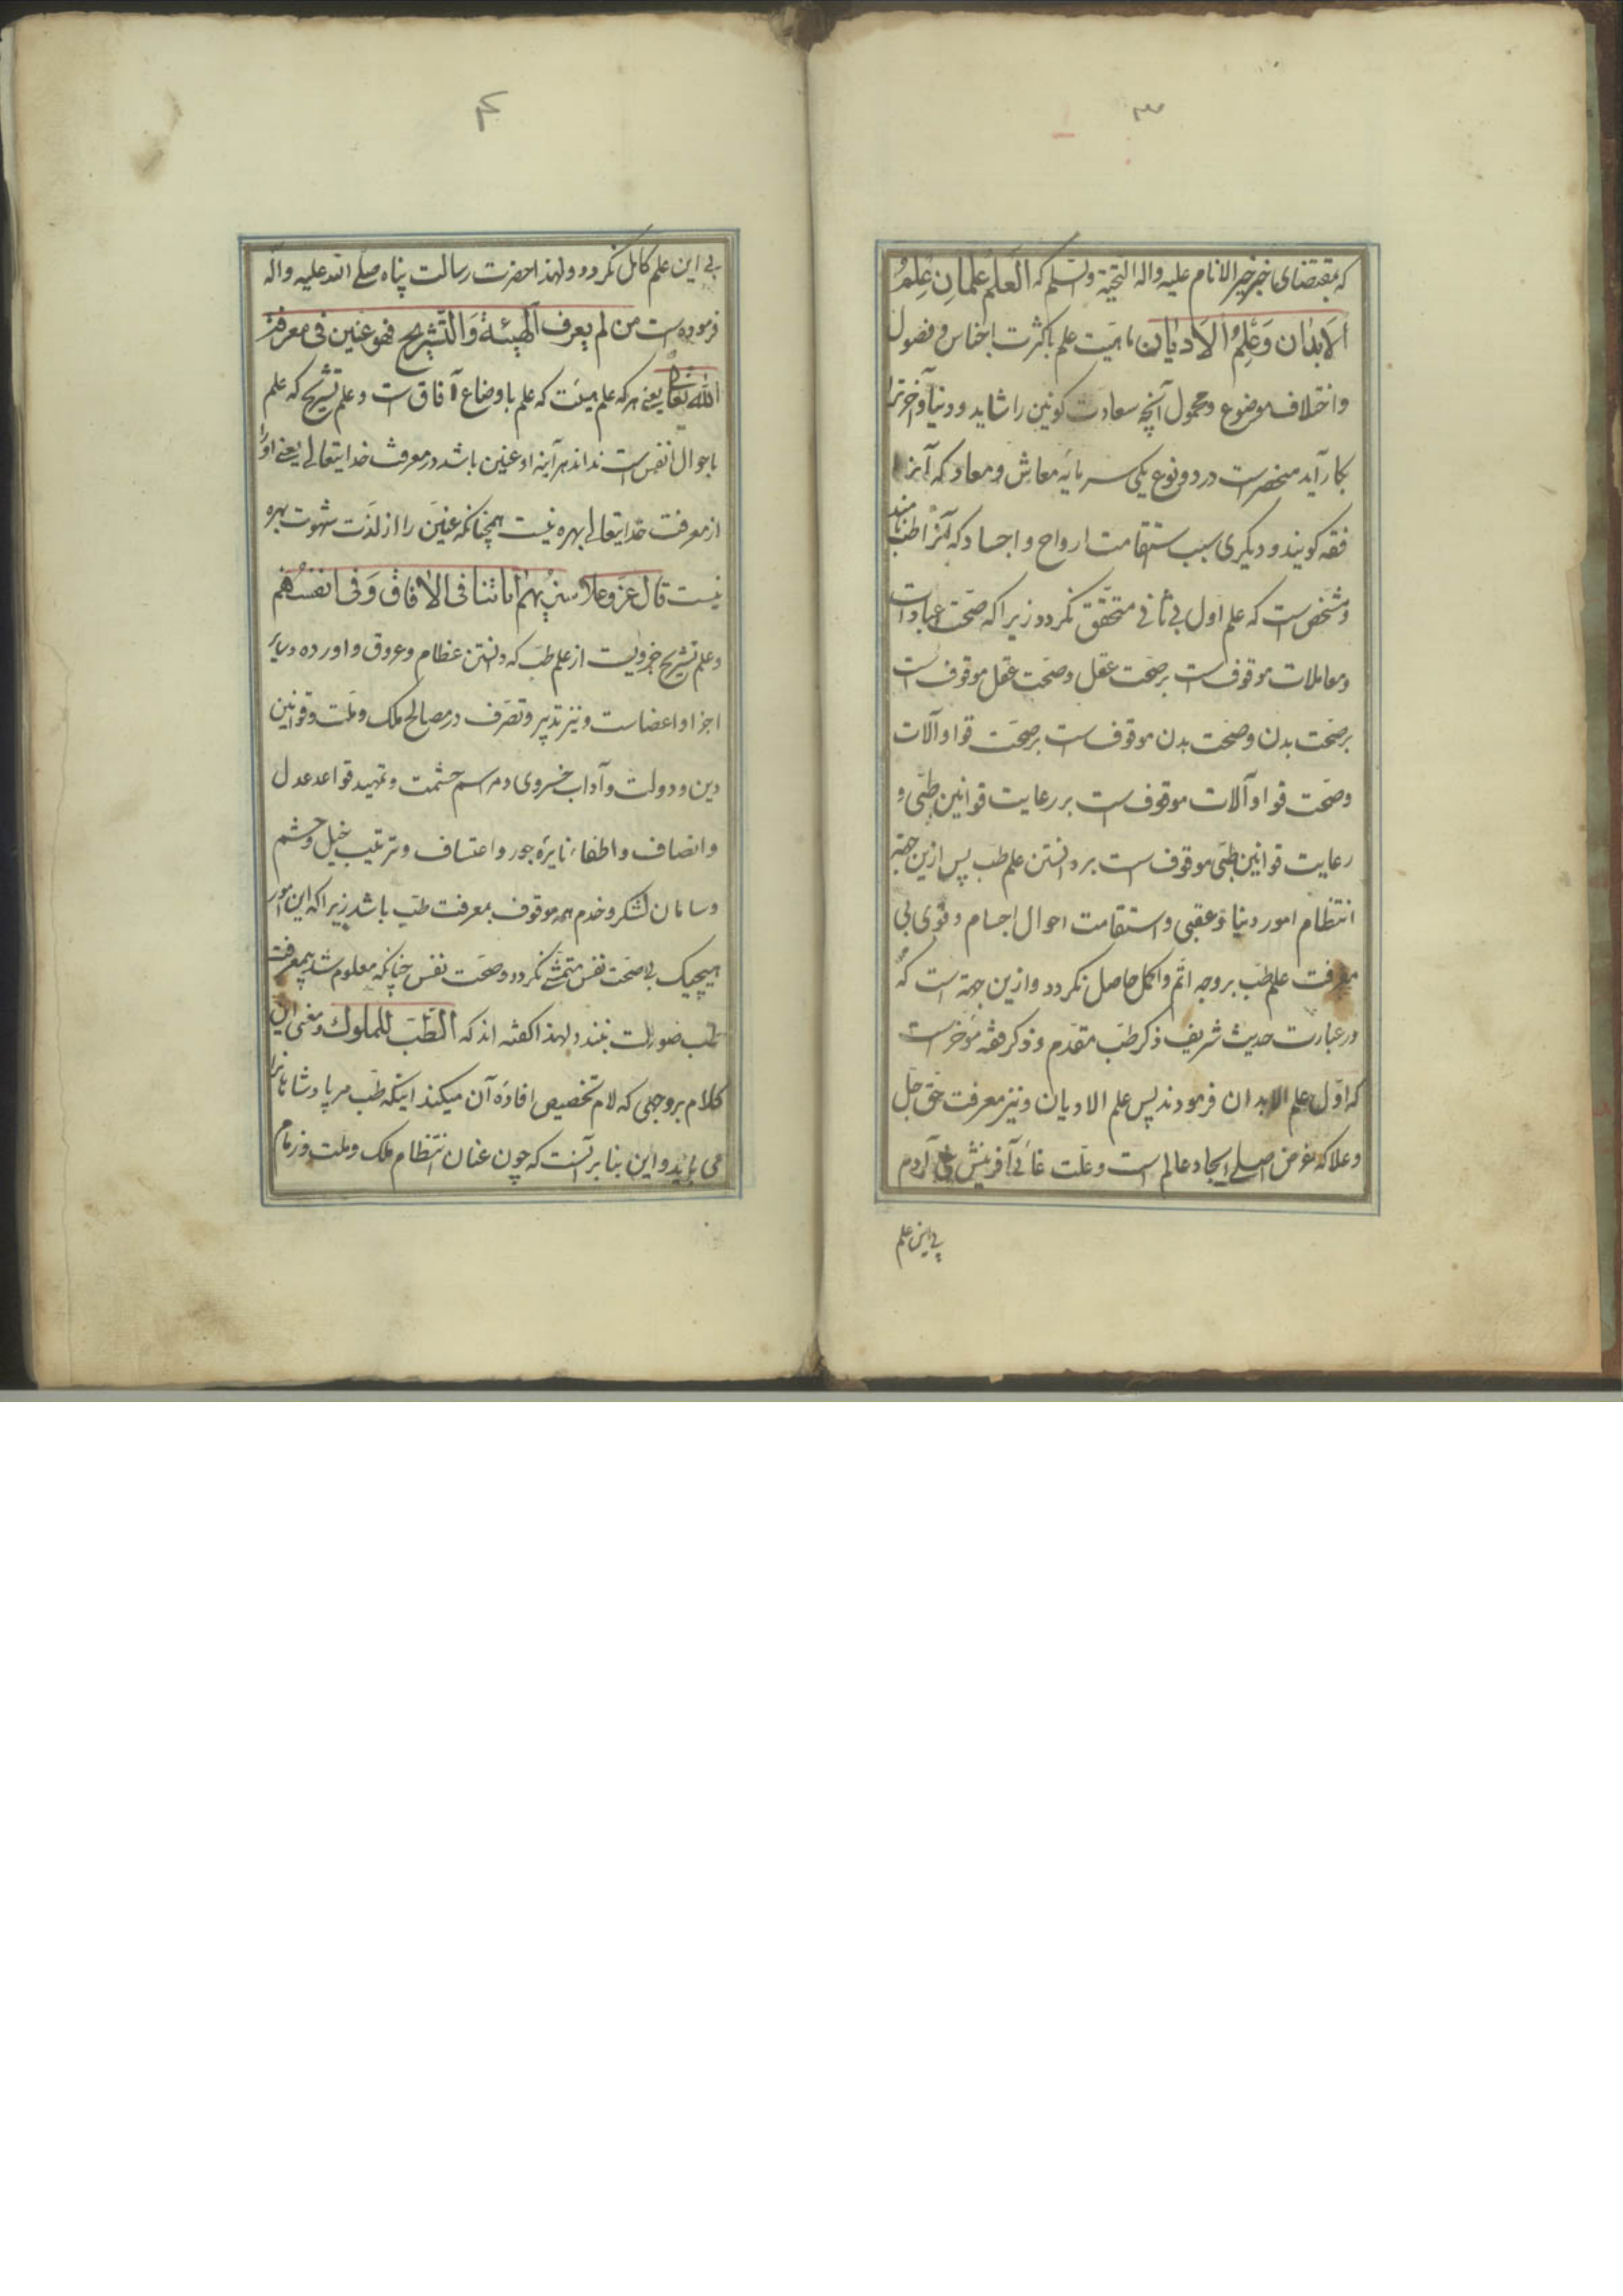 ۳
که بمقتضای خبر خیر الانام علیه واله التحیة والتسلیم که اَلعلمُ عِلمانِ عِلمُ
الاَبدان وَعِلمُ الاَدیان ماهیت علم باکثرت اجناس و فصول
و اختلاف موضوع و محمول آنچه سعادت کونین را شاید و دنیا و آخرترا
بکار آید منحصرست در دو نوع یکی سرمایه معاش و معاد که آنرا
فقه کویند و دیکری سبب استقامت ارواح و اجساد که آنرا طب نامند
و مشخص است که علم اول بی ثانی متحقق نکردد زیرا که صحت عبادات
و معاملات موقوفست بر صحت عقل و صحت عقل موقوفست
بر صحت بدن و صحت بدن موقوفست بر صحت قوا و آلات
و صحت قوا و آلات موقوفست بر رعایت قوانین طبی و
رعایت قوانین طبی موقوف است بر دانستن علم طب پس ازین جهة
انتظام امور دنیا و عقبی و استقامت احوال اجسام و قوی بی
معرفت علم طب بر وجه اتم و اکمل حاصل نکردد و ازین جهة است که
در عبارت حدیث شریف ذکر طب مقدم و ذکر فقه مؤخرست
که اوّل علم الابدان فرمودند پس علم الادیان و نیز معرفت حق جل
و علا که غرض اصلی ایجاد عالم است و علت غائی آفرینش آدم
بی این علم
۴
بی این علم کامل نکردد و لهذا حضرت رسالت پناه صلی الله علیه واله
فرموده است من لم یعرف الهیئة وَالتشریح فهو عنین فی معرفة
الله تعالی یعنی هرکه علم هیئت که علم باوضاع آفاق است و علم تشریح که علم
باحوال انفس است نداند هرآینه او عنین باشد در معرفت خدایتعالی یعنی او را
از معرفت خدایتعالی بهره نیست همچنانکه عنین را از لذت شهوت بهره
نیست قال عزوعلا سنریهم ایاتنا فی الافاق وَفی انفسهم
و علم تشریح جزویست از علم طب که دانستن عظام و عروق و اورده و سایر
اجزا و اعضاست و نیز تدبیر و تصرف در مصالح ملک و ملت و قوانین
دین و دولت و آداب خسروی و مراسم حشمت و تمهید قواعد عدل
و انصاف و اطفاء نایره جور و اعتساف و ترتیب خیل و حشم
و سامان لشکر و خدم همه موقوف بمعرفت طب باشد زیرا که این امور
هیچیک بی صحت نفس متمشی نکردد و صحت نفس چنانکه معلوم شد بی معرفت
طب صورت نبندد لهذا کفته اند که الطب للملوك و معنی این
کلام بر وجهی که لام تخصیص افاده آن میکند اینکه طب مر پادشاهانرا
می باید و این بنا بر آنست که چون عنان انتظام ملک و ملت و زمام